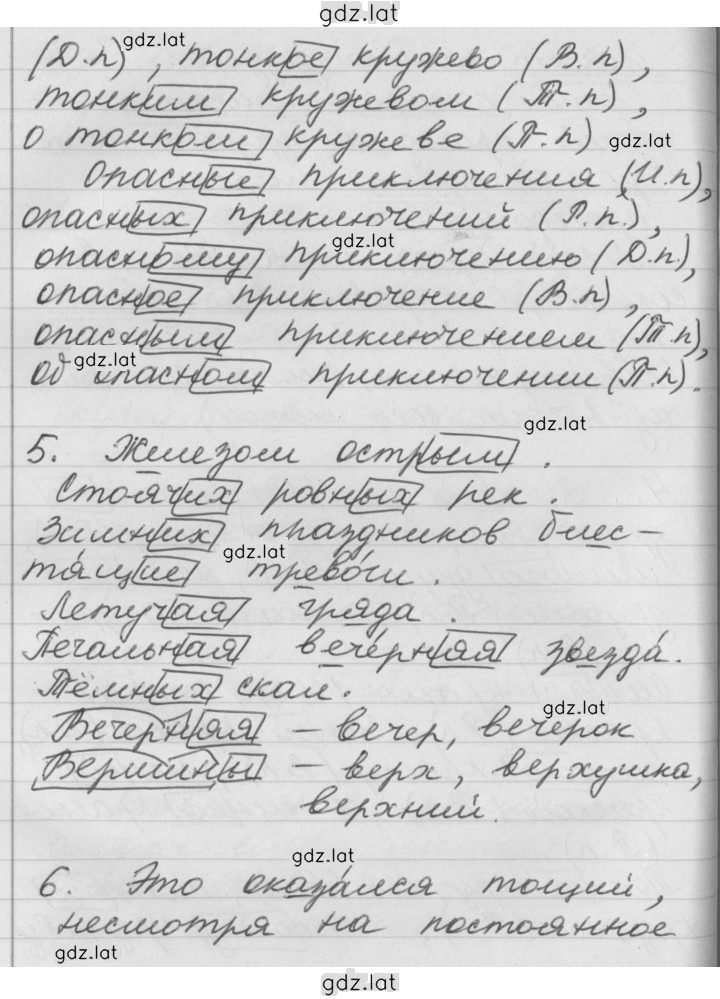 gdz.lat
gdz.lat
(Д.п), тонкое кружево (В.п),
тонким кружевом (Т.п),
о тонком кружеве (П.п)
gdz.lat
Опасные приключения (И.п),
опасных приключений (Р.п.),
gdz.lat
опасному приключению (Д.п),
опасное приключение (В.п),
опасным приключением (Т.п),
gdz.lat
об опасном приключении (П.п).
gdz.lat
5. Железом острым.
Стоячих ровных рек.
Зимних праздников блес-
gdz.lat
тя́щие трево́ги.
Летучая гряда.
Печальная вече́рняя звезда́.
Тёмных скал.
gdz.lat
Вечерняя – вечер, вечерок
Вершины – верх, верхушка,
верхний.
gdz.lat
6. Это оказа́лся тощий,
несмотря на постоянное
gdz.lat
gdz.lat